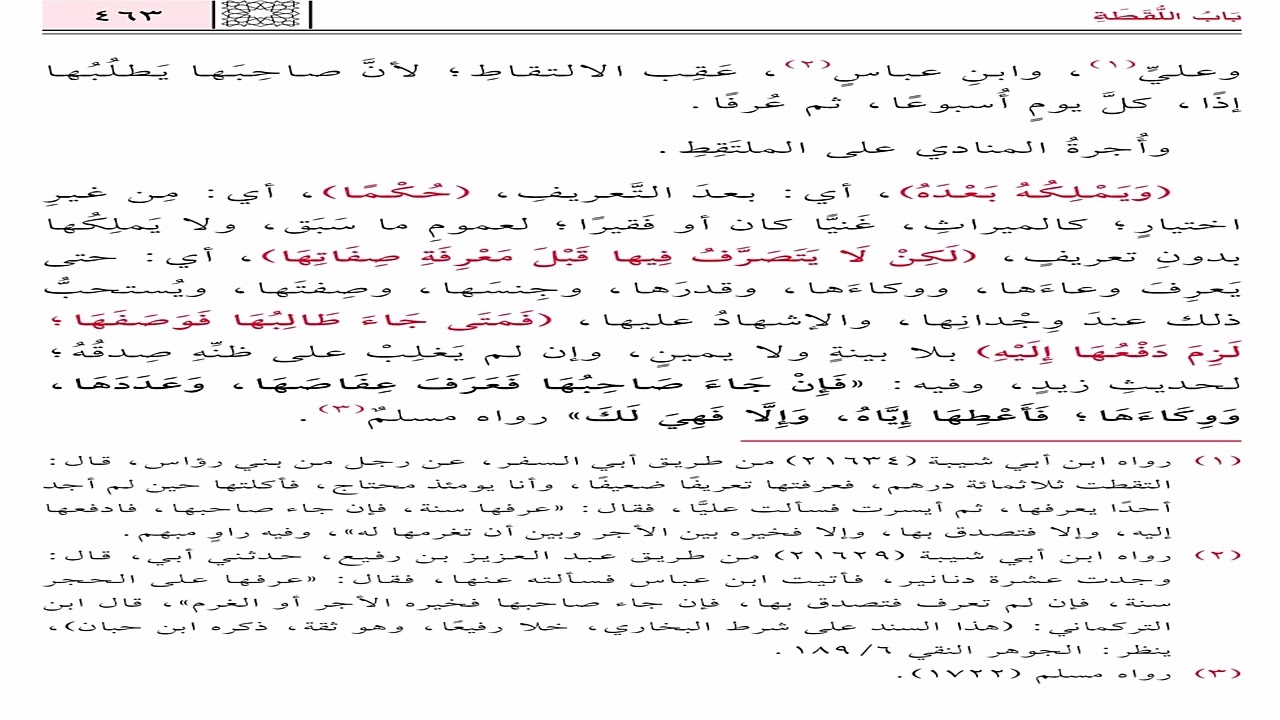 بَابُ اللُّقَطَةِ ٤٦٣
وعليٍّ(١)، وابنِ عباسٍ(٢)، عَقِب الالتقاطِ؛ لأنَّ صاحِبَها يَطلُبُها
إذًا، كلَّ يومٍ أُسبوعًا، ثم عُرفًا.
وأُجرةُ المنادي على الملتَقِطِ.
(وَيَمْلِكُهُ بَعْدَهُ)، أي: بعدَ التَّعريفِ، (حُكْمًا)، أي: مِن غيرِ
اختيارٍ؛ كالميراثِ، غَنيًّا كان أو فَقيرًا؛ لعمومِ ما سَبَق، ولا يَملِكُها
بدونِ تعريفٍ، (لَكِنْ لَا يَتَصَرَّفُ فِيها قَبْلَ مَعْرِفَةِ صِفَاتِهَا)، أي: حتى
يَعرِفَ وعاءَها، ووكاءَها، وقدرَها، وجِنسَها، وصِفتَها، ويُستحبُّ
ذلك عندَ وِجْدانِها، والإشهادُ عليها، (فَمَتَى جَاءَ طَالِبُهَا فَوَصَفَهَا؛
لَزِمَ دَفْعُهَا إِلَيْهِ) بلا بينةٍ ولا يمينٍ، وإن لم يَغلِبْ على ظنِّهِ صِدقُهُ؛
لحديثِ زيدٍ، وفيه: «فَإِنْ جَاءَ صَاحِبُهَا فَعَرَفَ عِفَاصَهَا، وَعَدَدَهَا،
وَوِكَاءَهَا؛ فَأَعْطِهَا إِيَّاهُ، وَإِلَّا فَهِيَ لَكَ» رواه مسلمٌ(٣).
(١) رواه ابن أبي شيبة (٢١٦٣٤) من طريق أبي السفر، عن رجل من بني رؤاس، قال:
التقطت ثلاثمائة درهم، فعرفتها تعريفًا ضعيفًا، وأنا يومئذ محتاج، فأكلتها حين لم أجد
أحدًا يعرفها، ثم أيسرت فسألت عليًّا، فقال: «عرفها سنة، فإن جاء صاحبها، فادفعها
إليه، وإلا فتصدق بها، وإلا فخيره بين الأجر وبين أن تغرمها له»، وفيه راوٍ مبهم.
(٢) رواه ابن أبي شيبة (٢١٦٢٩) من طريق عبد العزيز بن رفيع، حدثني أبي، قال:
وجدت عشرة دنانير، فأتيت ابن عباس فسألته عنها، فقال: «عرفها على الحجر
سنة، فإن لم تعرف فتصدق بها، فإن جاء صاحبها فخيره الأجر أو الغرم»، قال ابن
التركماني: (هذا السند على شرط البخاري، خلا رفيعًا، وهو ثقة، ذكره ابن حبان)،
ينظر: الجوهر النقي ٦/ ١٨٩.
(٣) رواه مسلم (١٧٢٢).